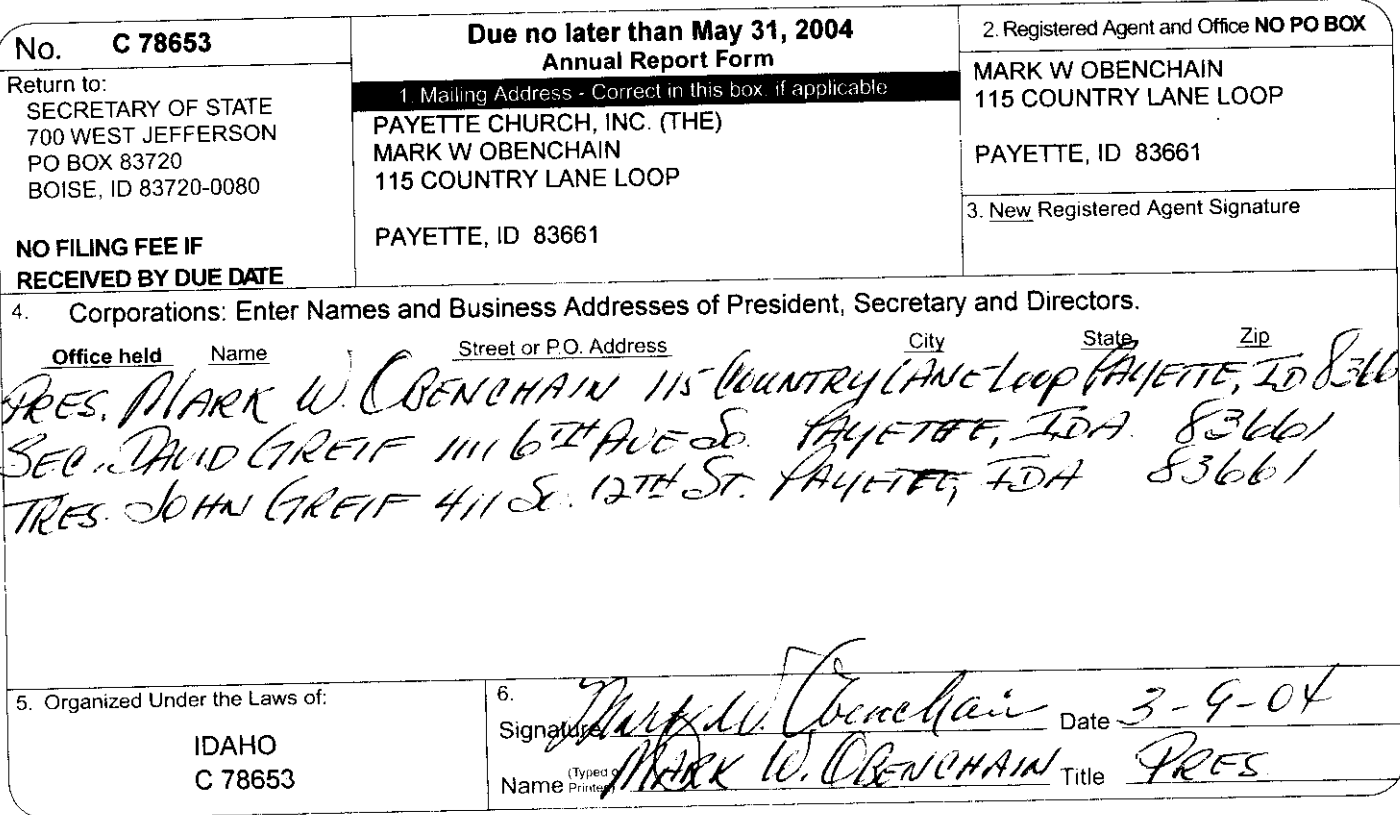 No. C 78653
Return to:
SECRETARY OF STATE
700 WEST JEFFERSON
PO BOX 83720
BOISE, ID 83720-0080
NO FILING FEE IF
RECEIVED BY DUE DATE
Due no later than May 31, 2004
Annual Report Form
1. Mailing Address - Correct in this box, if applicable
PAYETTE CHURCH, INC. (THE)
MARK W OBENCHAIN
115 COUNTRY LANE LOOP
PAYETTE, ID 83661
2. Registered Agent and Office NO PO BOX
MARK W OBENCHAIN
115 COUNTRY LANE LOOP
PAYETTE, ID 83661
3. New Registered Agent Signature
4. Corporations: Enter Names and Business Addresses of President, Secretary and Directors.
Office held Name Street or P.O. Address City State Zip
PRES. MARK W. OBENCHAIN 115 COUNTRY LANE LOOP PAYETTE, ID 8366
SEC. DAVID GREIF 1111 6TH AVE SO. PAYETTE, IDA. 83661
TRES. JOHN GREIF 411 SO. 12TH ST. PAYETTE, IDA 83661
5. Organized Under the Laws of:
IDAHO
C 78653
6.
Signature Mark W. Obenchain Date 3-9-04
Name (Typed or Printed) MARK W. OBENCHAIN Title PRES